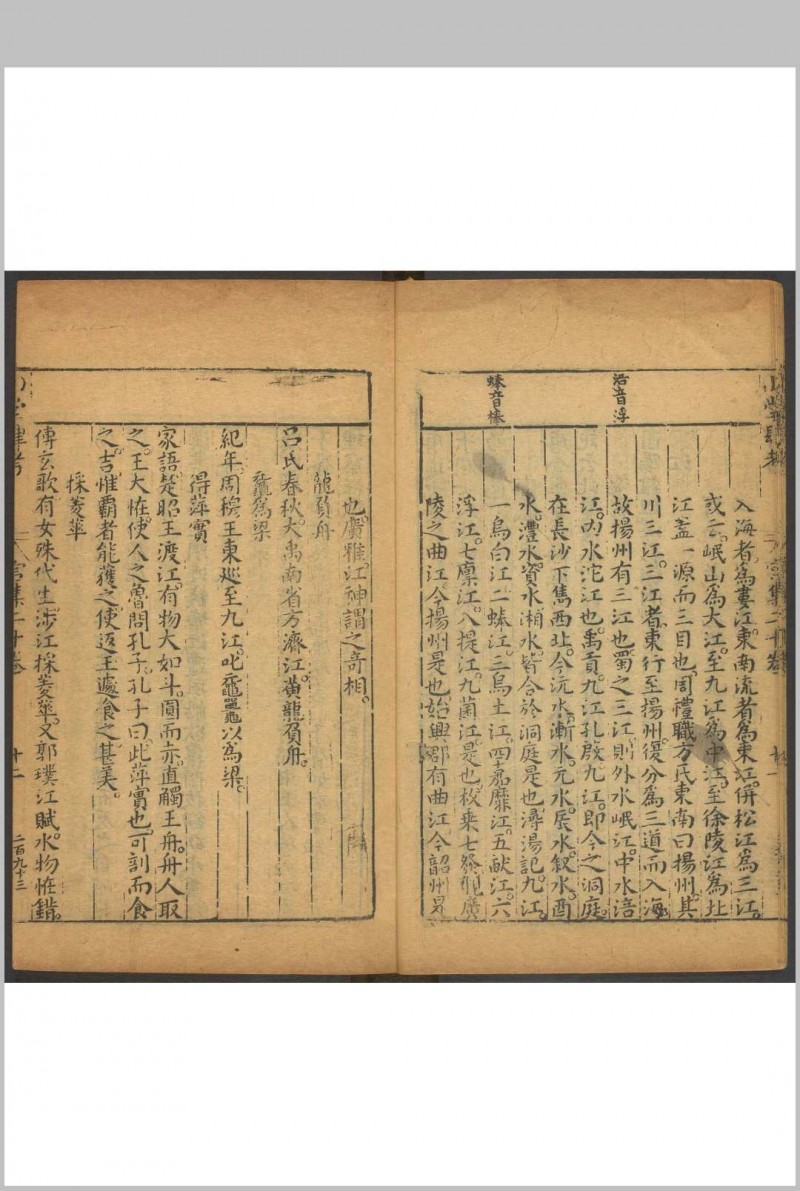 山堂肆考
宮集二十卷
十一
涪音浮
蜯音棒
入海者爲婁江東南流者爲東江併松江爲三江
或云岷山爲大江至九江爲中江至徐陵江爲北
江蓋一源而三目也周禮職方氏東南曰揚州其
川三江三江者東行至揚州復分爲三道而入海
故揚州有三江也蜀之三江則外水岷江中水涪
江內水沱江也禹貢九江孔殷九江即今之洞庭
在長沙下雋西北今沅水漸水元水辰水叙水酉
水澧水資水湘水皆合於洞庭是也潯陽記九江
一烏白江二蜯江三烏土江四嘉靡江五畎江六
浮江七廩江八提江九菌江是也枚乗七發觀廣
陵之曲江今揚州是也始興郡有曲江今韶州是
也廣雅江神謂之竒相
龍負舟
吕氏春秋大禹南省方濟江黄龍負舟
鼇爲梁
紀年周穆王東廵至九江叱黿鼉以爲梁
得萍實
家語楚昭王渡江有物大如斗圓而赤直觸王舟舟人取
之王大恠使人之魯問孔子孔子曰此萍實也可剖而食
之吉惟霸者能獲之使返王遽食之甚美
採菱華
傅玄歌有女殊代生渉江採菱華又郭璞江賦水物恠錯
山堂肆考
宮集二十卷
十二
二百九十三